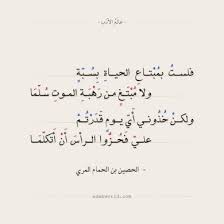 عالم الأدب
فلستُ بمُبْتاعِ الحياةِ بِسُبّةٍ
ولا مُبْتَغٍ من رَهْبَةِ الموتِ سُلّمَا
ولكنْ خُذُوني أيَّ يومٍ قَدَرْتُمْ
عليَّ فحُزُّوا الرأسَ أنْ أتكلّمَا
- الحصين بن الحمام المري
adabworld.com